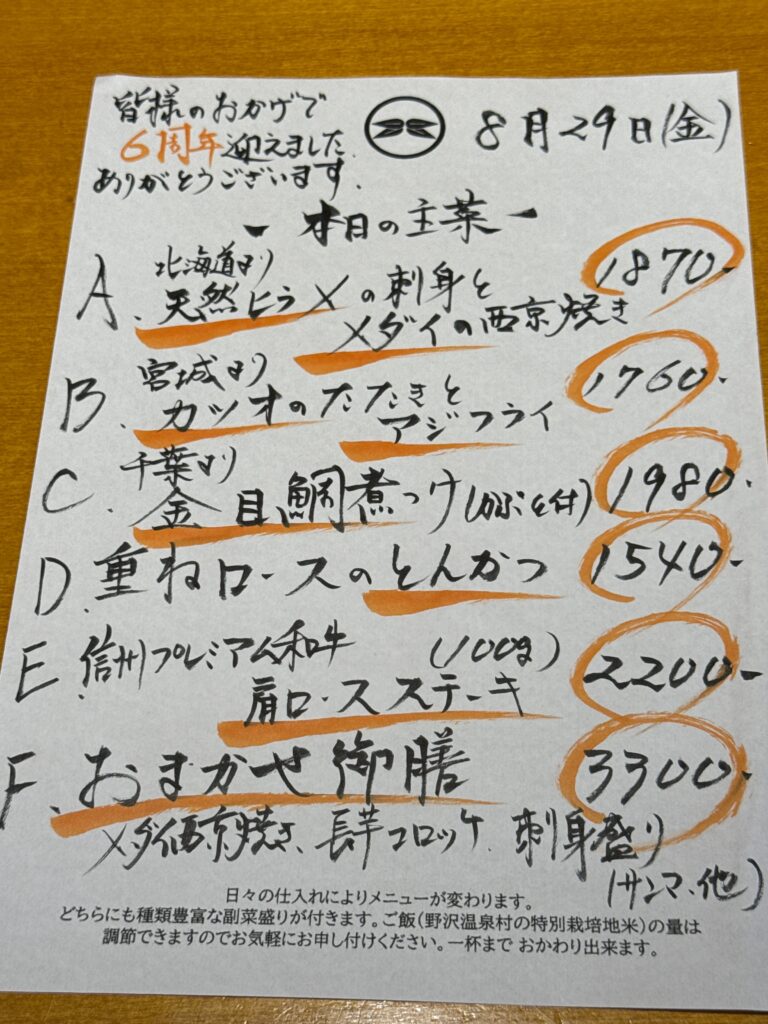 皆様のおかげで
6周年迎えました
ありがとうございます.
8月29日(金)
- 本日の主菜 -
北海道より
A. 天然ヒラメの刺身と
メダイの西京焼き
1870-
宮城より
B. カツオのたたきと
アジフライ
1760-
千葉より
C. 金目鯛煮つけ(かぶと付)
1980-
D. 重ねロースのとんかつ
1540-
E. 信州プレミアム和牛 (100g)
肩ロースステーキ
2200-
F. おまかせ御膳
3300-
メダイ西京焼き、長芋コロッケ、刺身盛り
(サンマ、他)
日々の仕入れによりメニューが変わります。
どちらにも種類豊富な副菜盛りが付きます。ご飯(野沢温泉村の特別栽培地米)の量は
調節できますのでお気軽にお申し付けください。一杯まで おかわり出来ます。